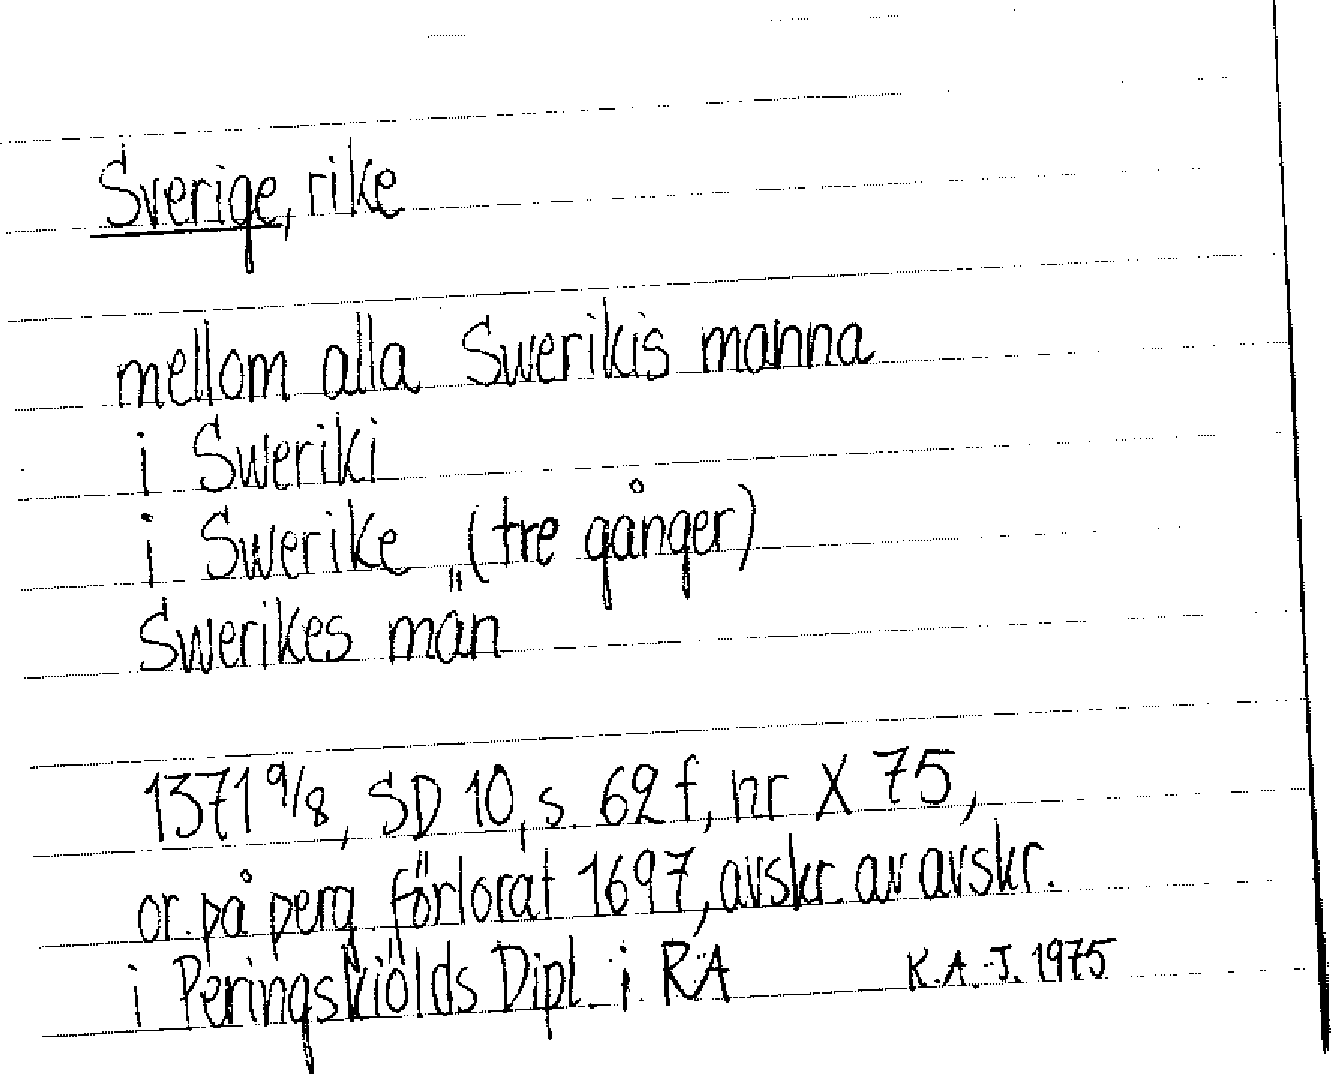 Sverige, rike
mellom alla Swerikis manna
i Sweriki
i Swerike (tre gånger)
Swerikes män
1371 9/8, SD 10, s. 62 f, nr X 75,
or. på perg. förlorat 1697, avskr. av avskr.
i Peringskiölds Dipl. i RA K.A.J. 1975